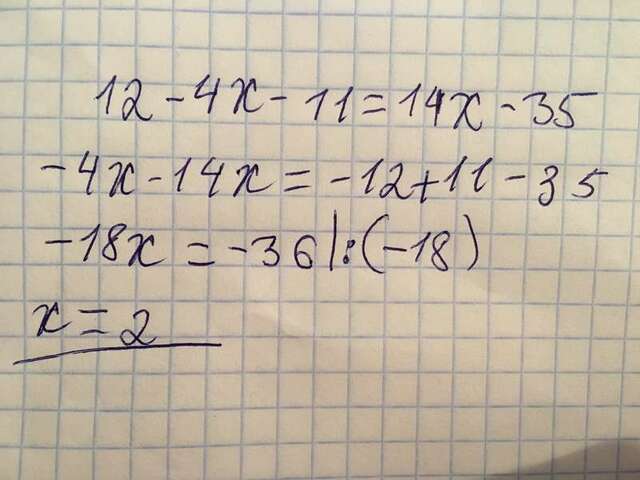 12 - 4x - 11 = 14x - 35
-4x - 14x = -12 + 11 - 35
-18x = -36 |:(-18)
x = 2